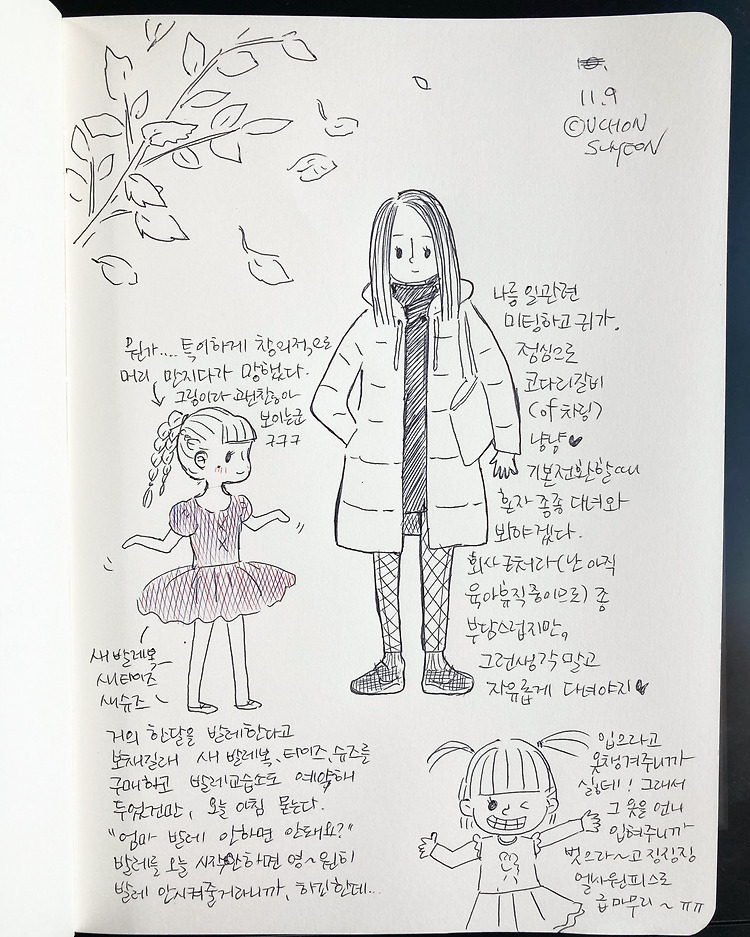 11.9
©UCHON
SUYEON
나름 일관련
미팅하고 귀가.
점심으로
코다리갈비
(of 차림)
냠냠♥
기분전환할 겸
혼자 종종 다녀와
봐야겠다.
회사 근처라(난 아직
육아휴직중이므로) 좀
부담스럽지만,
그런생각 말고
자유롭게 다녀야지♥
뭔가.... 특이하게 창의적으로
머리 만지다가 망했다.
그림이라 괜찮아
보이는군
ㅋㅋㅋ
새 발레복
새타이즈
새슈즈
거의 한달을 발레한다고
보채길래 새 발레복, 타이즈, 슈즈를
구매하고 발레교습소도 예약해
두었건만, 오늘 아침 묻는다.
"엄마 발레 안하면 안돼요?"
발레를 오늘 시작안하면 영~원히
발레 안시켜줄거라니까, 하긴한데...
입으라고
옷챙겨주니까
싫대!! 그래서
그 옷을 언니
입혀주니까
벗으라~고 징징징
엘사원피스로
급마무리~ ㅠㅠ